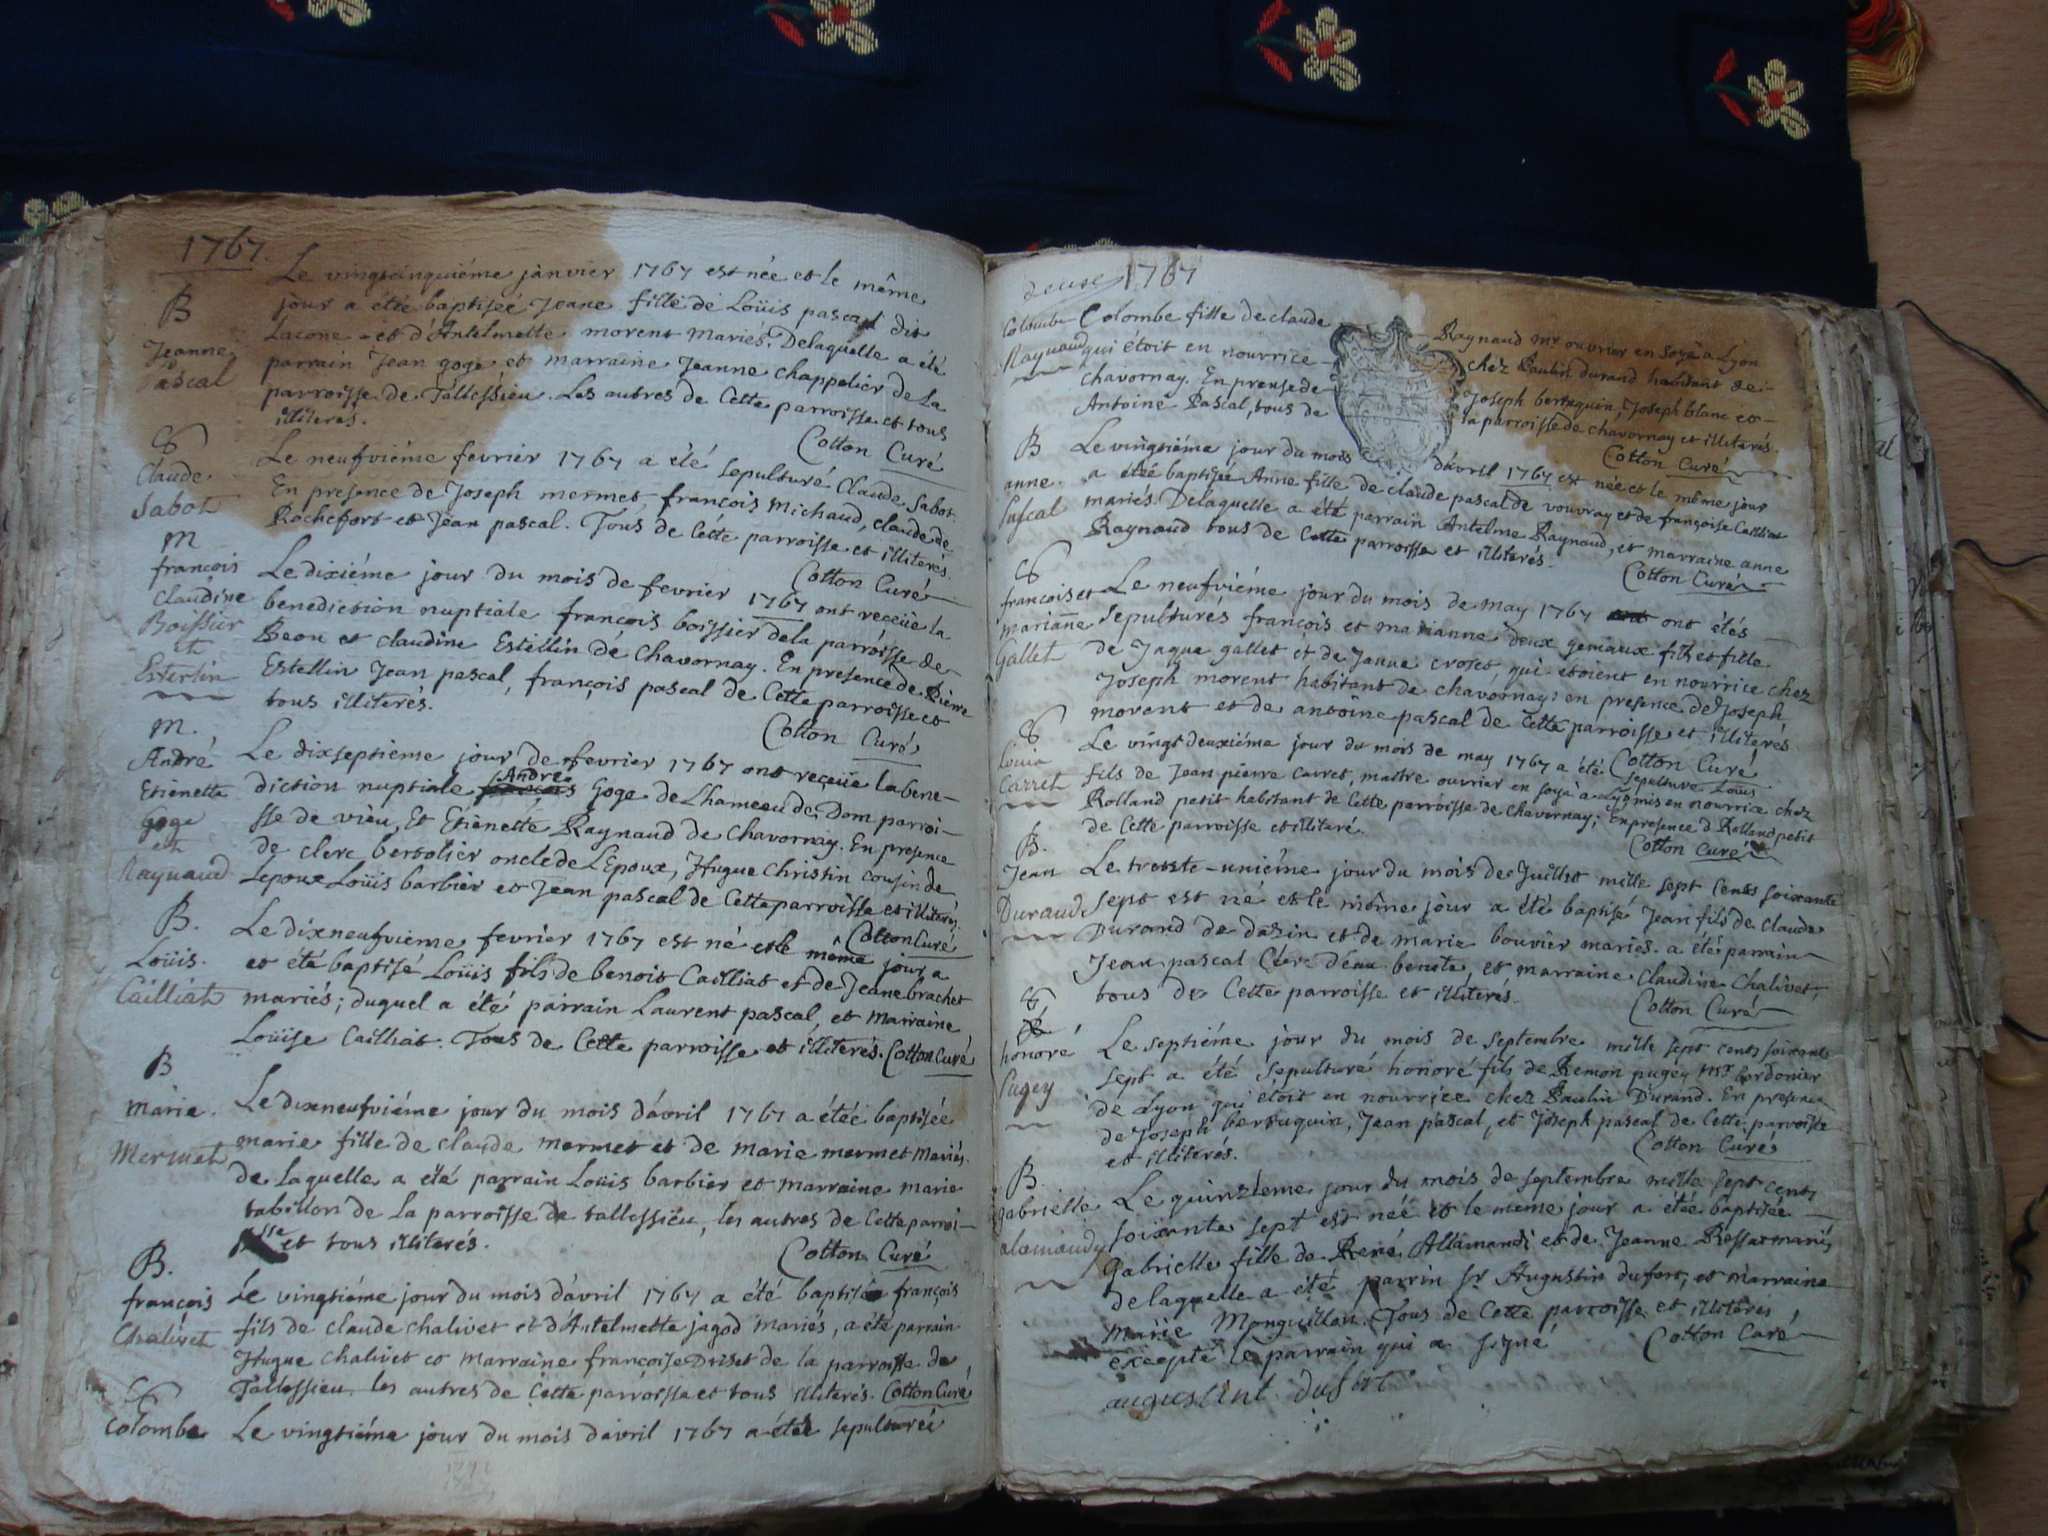 1767.
B
Jeanne
Pascal
Le vingtcinquiéme janvier 1767 est née et le même
jour a étée baptiseé Jeane fille de Loüis pascal dit
Lacone et d'Antelmette morent mariés. Delaquelle a été
parrain Jean goge et marraine Jeanne chappelier de La
parroisse de Tallessieu. Les autres de Cette parroisse et tous
illiterés.
Cotton Curé
S
Claude
Sabot
Le neufviéme fevrier 1767 a été sepulturé Claude Sabot.
En presence de Joseph mermet, françois Michaud, claude de
Rochefort et Jean pascal. Tous de Cette parroisse et illiterés.
Cotton Curé
M
françois
Claudine
Boissier
et
Estertin
Le dixiéme jour du mois de fevrier 1767 ont receüe la
benediction nuptiale françois boissier dela parroisse de
Beon et claudine Estellin de Chavornay. En presence de Pierre
Estellin Jean pascal, françois pascal de Cette parroisse et
tous illiterés.
Cotton Curé
M.
André
Etienette
Goge
et
Raynaud
Le dixseptieme jour de fevrier 1767 ont receüe la bene-
diction nuptiale André Goge de Lhameau de Dom parroi-
sse de vieu, Et Etienette Raynaud de Chavornay. En presence
de clerc bertolier oncle de L'Epoux, Hugue Christin cousin de
Lepoux Loüis barbier et Jean pascal de Cette parroisse et illiterés.
Cotton Curé
B.
Loüis.
Cailliat
Le dixneufvieme fevrier 1767 est né et le même jour a
et été baptisé Loüis fils de benoit Cailliat et de Jeane brachet
mariés; duquel a été parrain Laurent pascal et Marraine
Loüise Cailliat. Tous de Cette parroisse et illiterés. Cotton Curé
B
Marie.
Mermet
Le dixneufviéme jour du mois d'avril 1767 a étée baptisée
marie fille de claude mermet et de marie mermet Mariés.
de laquelle a été parrain Louis barbier et marraine marie
tabillon de la parroisse de tallessieu, les autres de Cette parroi-
sse et tous illiterés.
Cotton Curé
B.
françois
Chalivet
Le vingtiéme jour du mois d'avril 1767 a été baptisé françois
fils de claude chalivet et d'Antelmette jagod mariés, a été parrain
Hugue Chalivet et Marraine françoise Driset de la parroisse de
Tallessieu les autres de Cette parroisse et tous illiterés. Cotton Curé
S
Colombe
Le vingtiéme jour du mois d'avril 1767 a étée sepulturée
deuse 1767
Colombe
Raynaud
Colombe fille de claude Raynaud mr. ouvrier en soye a Lyon
qui étoit en nourrice chez Paulin durand habitant de
Chavornay. En presence de Joseph bertuquin, Joseph blanc et
Antoine Pascal, tous de la parroisse de chavornay et illiterés.
Cotton Curé
B
anne
Pascal
Le vingtiéme jour du mois d'avril 1767 est née et le même jour
a étée baptisée Anne fille de claude pascal de vouvray et de françoise Cailliat
mariés. Delaquelle a été parrain Antelme Raynaud, et marraine anne
Raynaud tous de Cette parroisse et illiterés.
Cotton Curé
S
françois et
marianne
Gallet
Le neufviéme jour du mois de may 1767 ont étés
sepulturés françois et marianne deux gemaux fils et fille
de Jaque gallet et de Janne croset, qui etoient en nourrice chez
Joseph morent habitant de chavornay: en presence de Joseph
morent et de antoine pascal de Cette parroisse et illiterés
Cotton Curé
S
Louis
Carret
Le vingt deuxiéme jour du mois de may 1767 a été sepulturé Loüis
fils de Jean pierre carret, maitre ouvrier en soye a Lyon mis en nourrice chez
Rolland petit habitant de Cette parroisse de Chavornay; En presence d Rolland petit
de Cette parroisse et illiteré.
Cotton Curé
B.
Jean
Durand
Le trente-uniéme jour du mois de Juillet mille sept Cents soixante
sept est né et le même jour a été baptisé Jean fils de Claude
Durand de dazin et de marie bouvier mariés. a été parrain
Jean pascal Clerc d'eau benite, et marraine Claudine Chalivet,
tous de Cette parroisse et illiterés.
Cotton Curé
S
honoré
Pugey
Le septiéme jour du mois de septembre mille sept cents soixante
sept a été sepulturé honoré fils de Remon pugey mr. Cordonier
de Lyon qui étoit en nourrice chez Paulin Durand. En presence
de Joseph bertuquin, Jean pascal, et Joseph pascal de Cette parroisse
et illiterés.
Cotton Curé
B.
gabrielle
alamandy
Le quinzieme jour du mois de septembre mille sept cents
soixante sept est née et le meme jour a étée baptisée
gabrielle fille de René Allamandi et de Jeanne Ressat mariés
delaquelle a été parrin Sr. Augustin dufort, et marraine
Marie Monguillon. Tous de Cette parroisse et illiterés
excepté le parrain qui a signé
Cotton Curé
augustint dufort